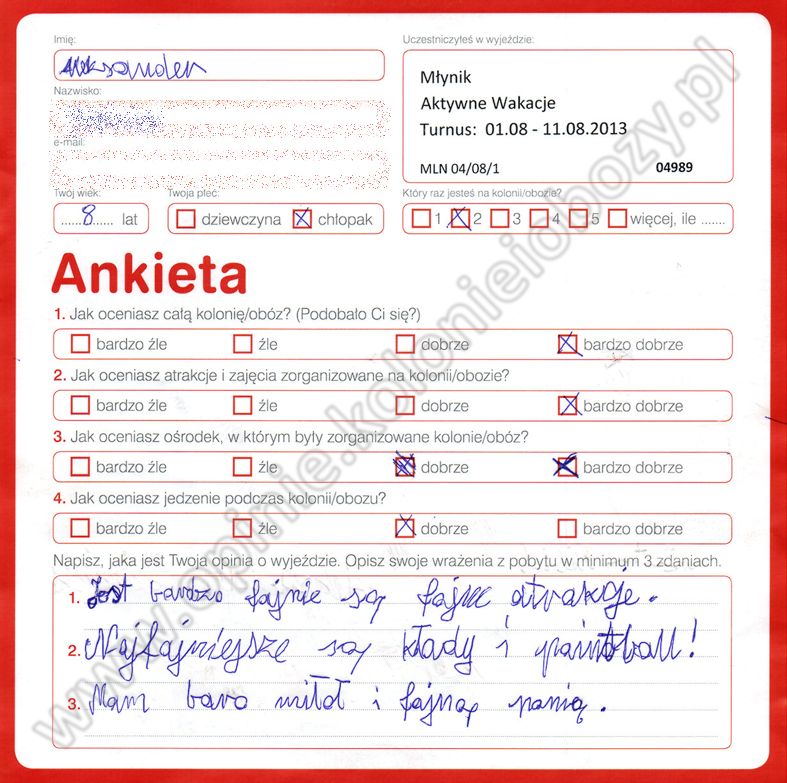 Imię:
Aleksander
Nazwisko:
e-mail:
Uczestniczyłeś w wyjeździe:
Młynik
Aktywne Wakacje
Turnus: 01.08 - 11.08.2013
MLN 04/08/1 04989
Twój wiek:
......8...... lat
Twoja płeć:
dziewczyna chłopak
Który raz jesteś na kolonii/obozie?
1 2 3 4 5 więcej, ile .......
Ankieta
1. Jak oceniasz całą kolonię/obóz? (Podobało Ci się?)
bardzo źle źle dobrze bardzo dobrze
2. Jak oceniasz atrakcje i zajęcia zorganizowane na kolonii/obozie?
bardzo źle źle dobrze bardzo dobrze
3. Jak oceniasz ośrodek, w którym były zorganizowane kolonie/obóz?
bardzo źle źle dobrze bardzo dobrze
4. Jak oceniasz jedzenie podczas kolonii/obozu?
bardzo źle źle dobrze bardzo dobrze
Napisz, jaka jest Twoja opinia o wyjeździe. Opisz swoje wrażenia z pobytu w minimum 3 zdaniach.
1. Jest bardzo fajnie są fajne atrakcje.
2. Najfajniejsze są kłady i paintball!
3. Mam i fajną panią.
www.opinie.kolonieiobozy.pl